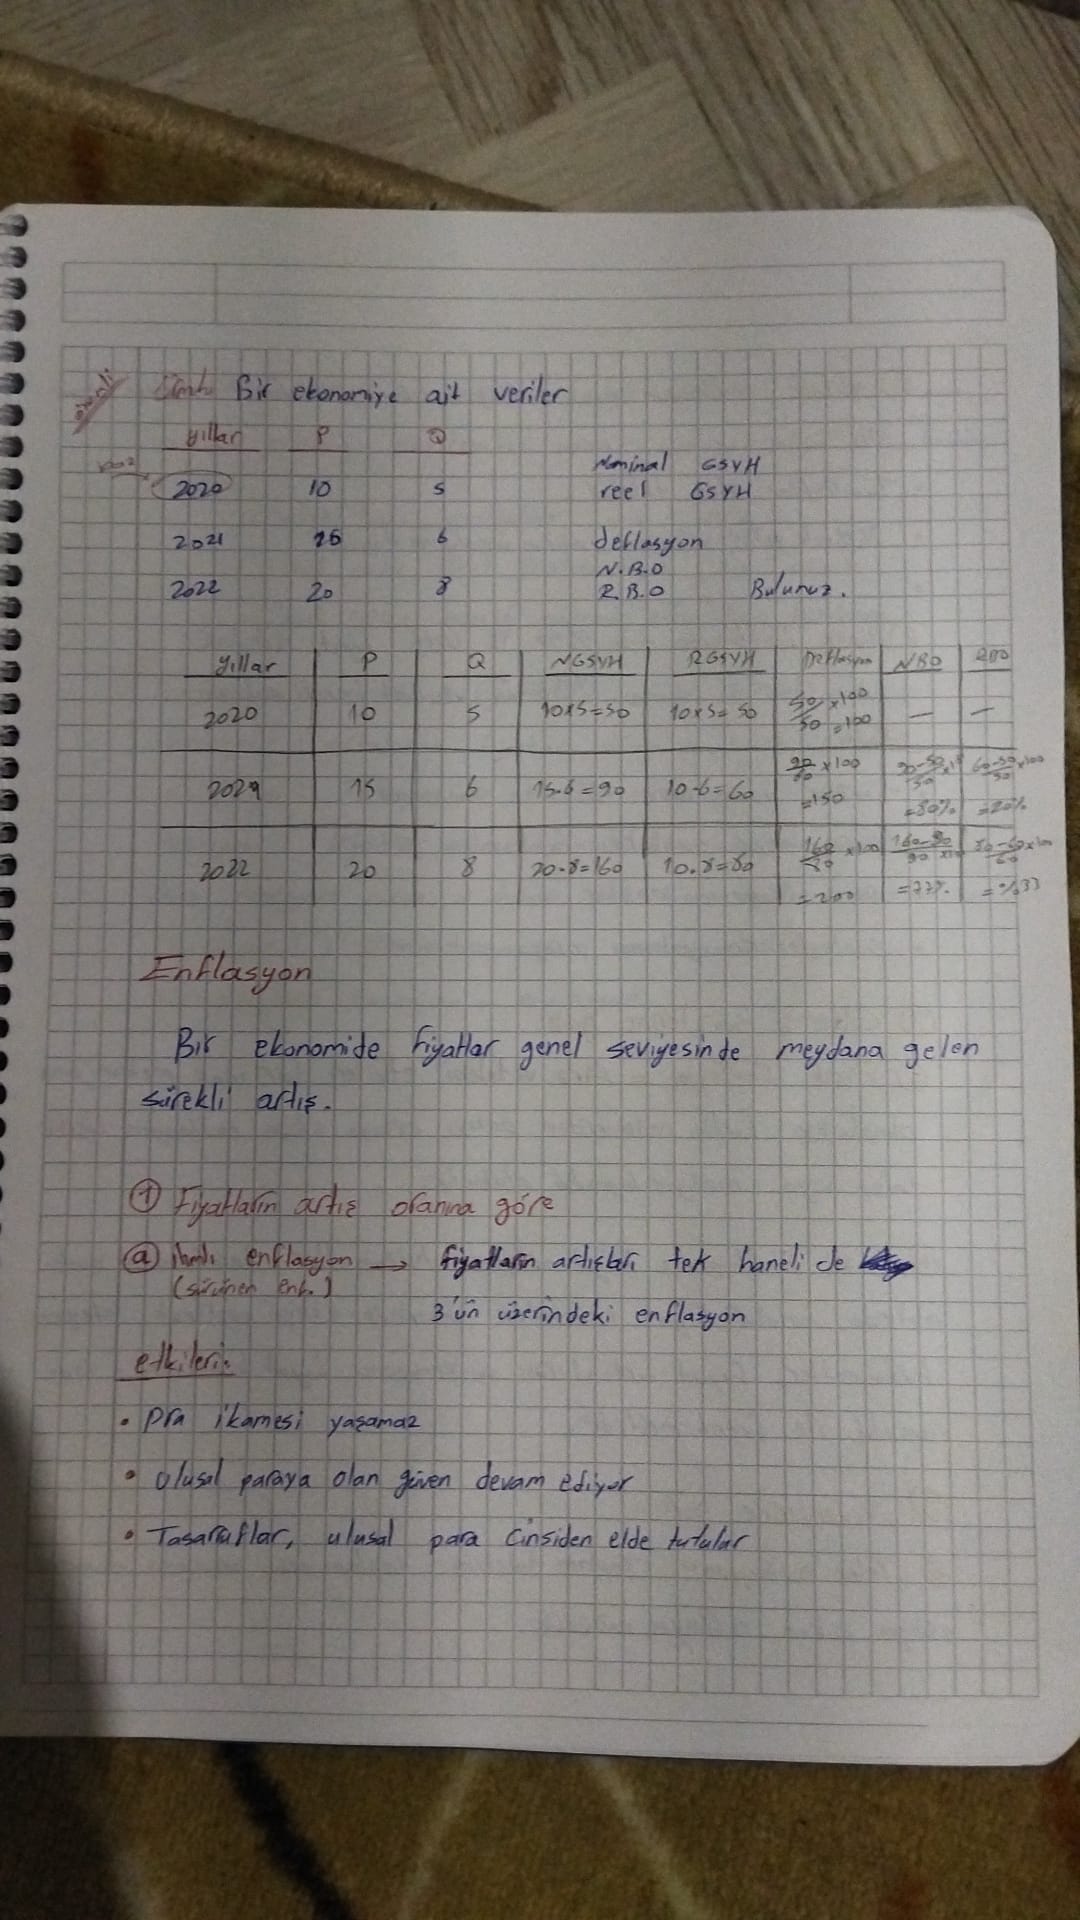 önemli
Örnek Bir ekonomiye ait veriler
yıllar P Q
Nominal GSYH
2020 10 5 reel GSYH
2021 15 6 deflasyon
N.B.O
2022 20 8 R.B.O Bulunuz.
Yıllar P Q NGSYH RGSYH Deflasyon NBO RBO
2020 10 5 10x5=50 10x5=50 50/50 x100 =100 — —
2021 15 6 15.6=90 10.6=60 90/60 x100 =150 90-50/50 =80% 60-50/50 x100 =20%
2022 20 8 20.8=160 10.8=80 160/80 x100 =200 160-90/90 x100 =77% 80-60/60 x100 =%33
Enflasyon
Bir ekonomide fiyatlar genel seviyesinde meydana gelen
sürekli artış.
① Fiyatların artış oranına göre
ⓐ ılımlı enflasyon → fiyatların artışları tek haneli de
(sürünen enf.)
3'ün üzerindeki enflasyon
etkileri:
• Pra ikamesi yaşamaz
• Ulusal paraya olan güven devam ediyor
• Tasarruflar, ulusal para cinsiden elde tutulur